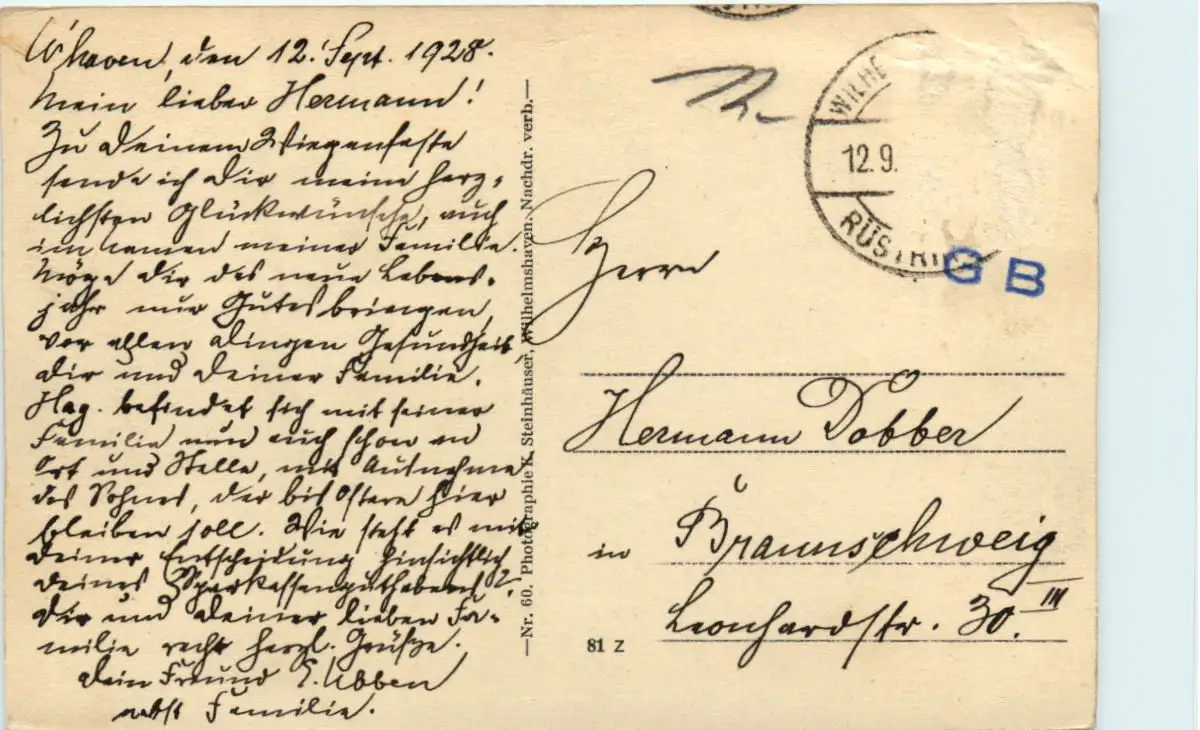 W'haven, den 12. Sept. 1928.
Mein lieber Hermann!
Zu Deinem Wiegenfeste
sende ich Dir meine herz-
lichsten Glückwünsche, auch
im Namen meiner Familie.
Möge Dir das neue Lebens-
jahr nur Gutes bringen,
vor allen Dingen Gesundheit
Dir und Deiner Familie.
Hag. befindet sich mit seiner
Familie nun auch schon an
Ort und Stelle, mit Ausnahme
des Sohnes, der bis Ostern hier
bleiben soll. Wie steht es mit
Deiner Entscheidung hinsichtlich
Deines Sparkassenguthabens?
Dir und Deiner lieben Fa-
milie recht herzl. Grüße.
Dein Freund E. Ubben
nebst Familie.
—Nr. 60. Photographie K. Steinhäuser, Wilhelmshaven. Nachdr. verb.—
WILHE
12.9.
RÜSTRI
G B
Herrn
Hermann Dobber
in Braunschweig
Leonhardstr. 30. III
81 Z